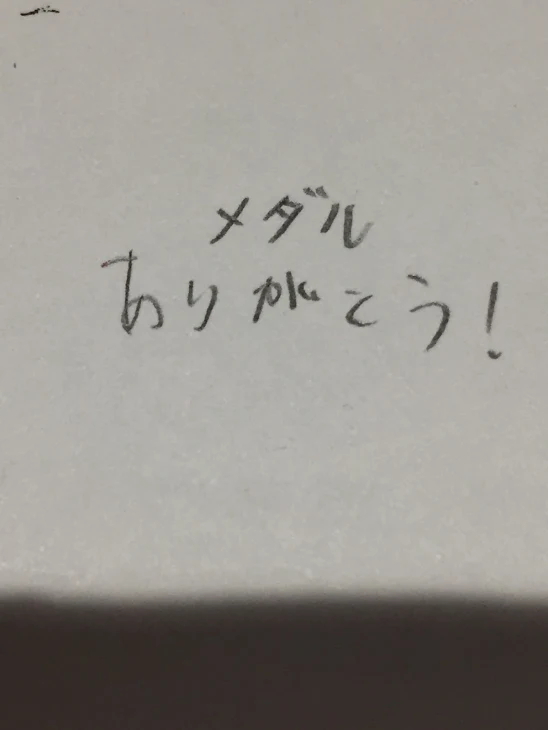 メダル
ありがとう!